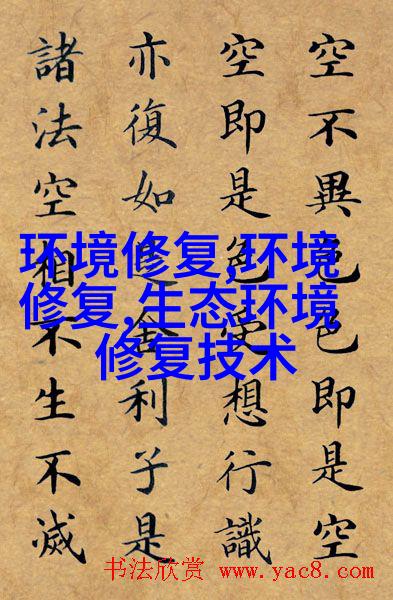 空不異色色即是空
空即是色受想行識
亦復如是舍利子是
諸法空相不生不滅
环境修复,环境
修复,生态环境
修复技术
书法欣赏 www.yac8.com